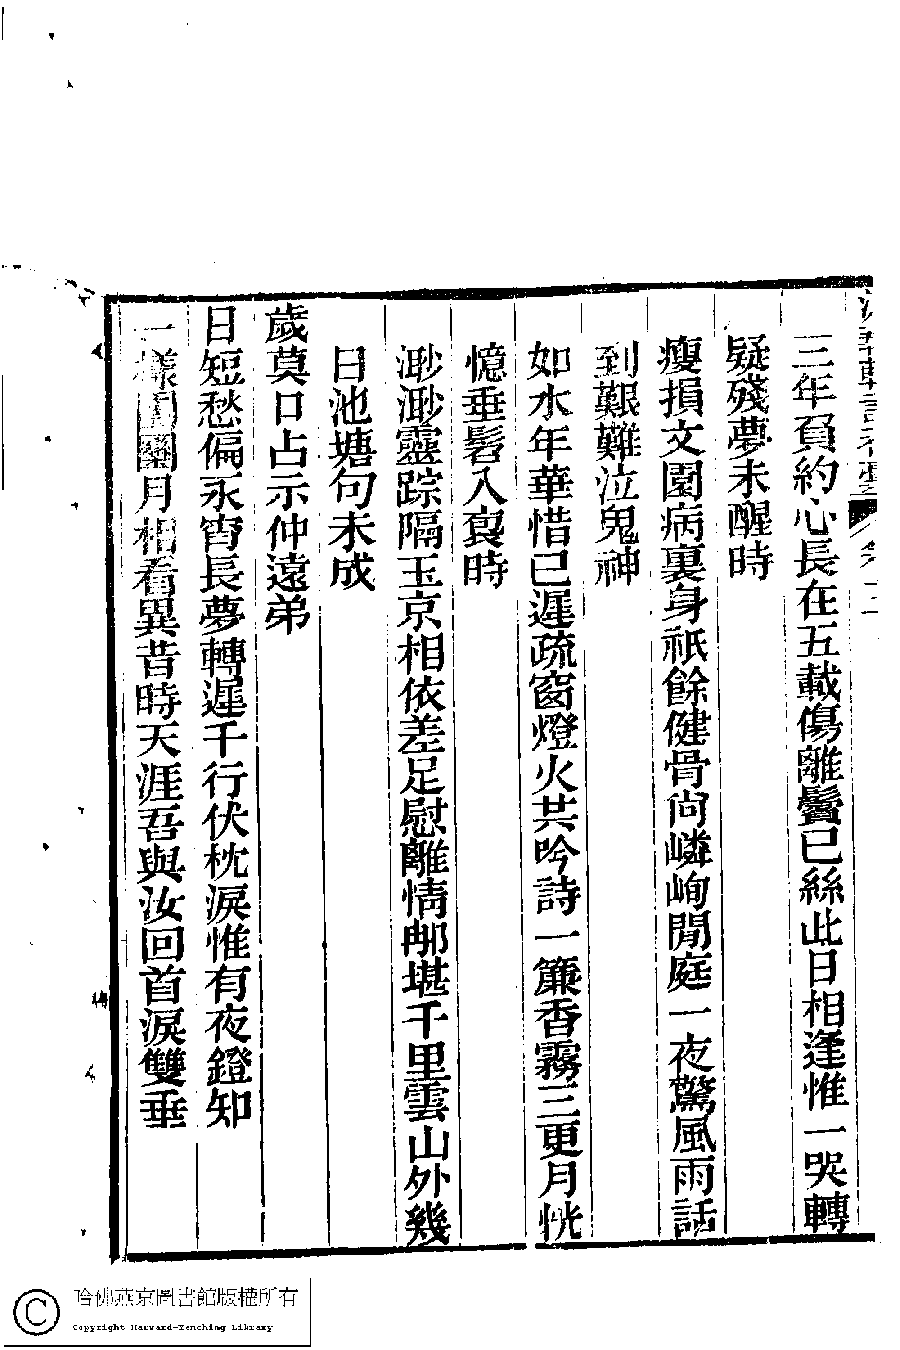 三年負約心長在五載傷離鬢已絲此日相逢惟一哭轉
疑殘夢未醒時
瘦損文園病裏身祇餘健骨尚嶙峋閒庭一夜驚風雨話
到艱難泣鬼神
如水年華惜已遲疏窗燈火共吟詩一簾香霧三更月恍
憶垂髫入㒵時
渺渺靈踪隔玉京相依差足慰離情那堪千里雲山外幾
日池塘句未成
歲莫口占示仲遠弟
日短愁偏永宵長夢轉遲千行伏枕淚惟有夜鐙知
一樣月相看異昔時天涯吾與汝回首淚雙垂
哈佛燕京圖書館版權所有
Copyright Harvard-Yenching Library